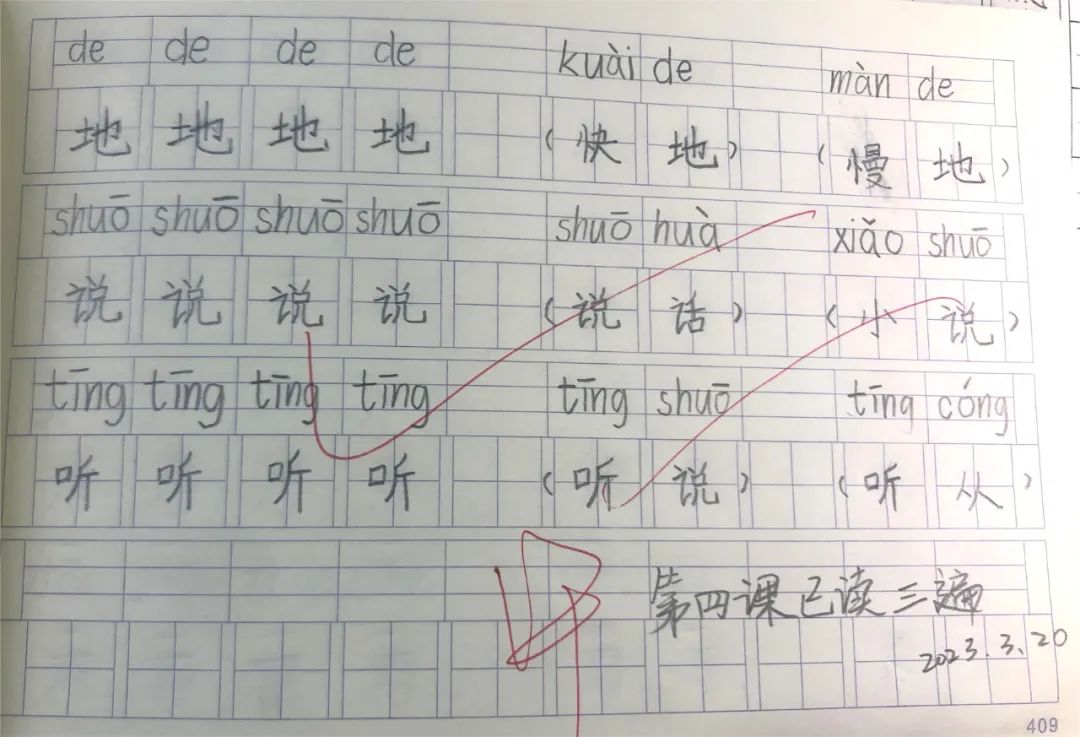 de de de de kuài de màn de
地 地 地 地 (快 地) (慢 地)
shuō shuō shuō shuō shuō huà xiǎo shuō
说 说 说 说 (说 话) (小 说)
tīng tīng tīng tīng tīng shuō tīng cóng
听 听 听 听 (听 说) (听 从)
第四课已读三遍
2023.3.20
409